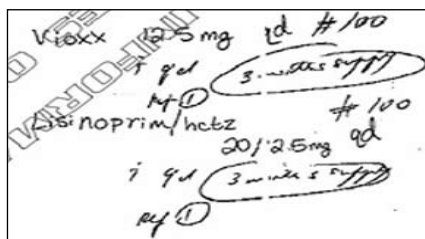 Vioxx 12.5 mg qd #100
i qd 3 months supply
Ref 1
Lisinoprim/hctz #100
20/12.5mg qd
i qd 3 months supply
Ref 1